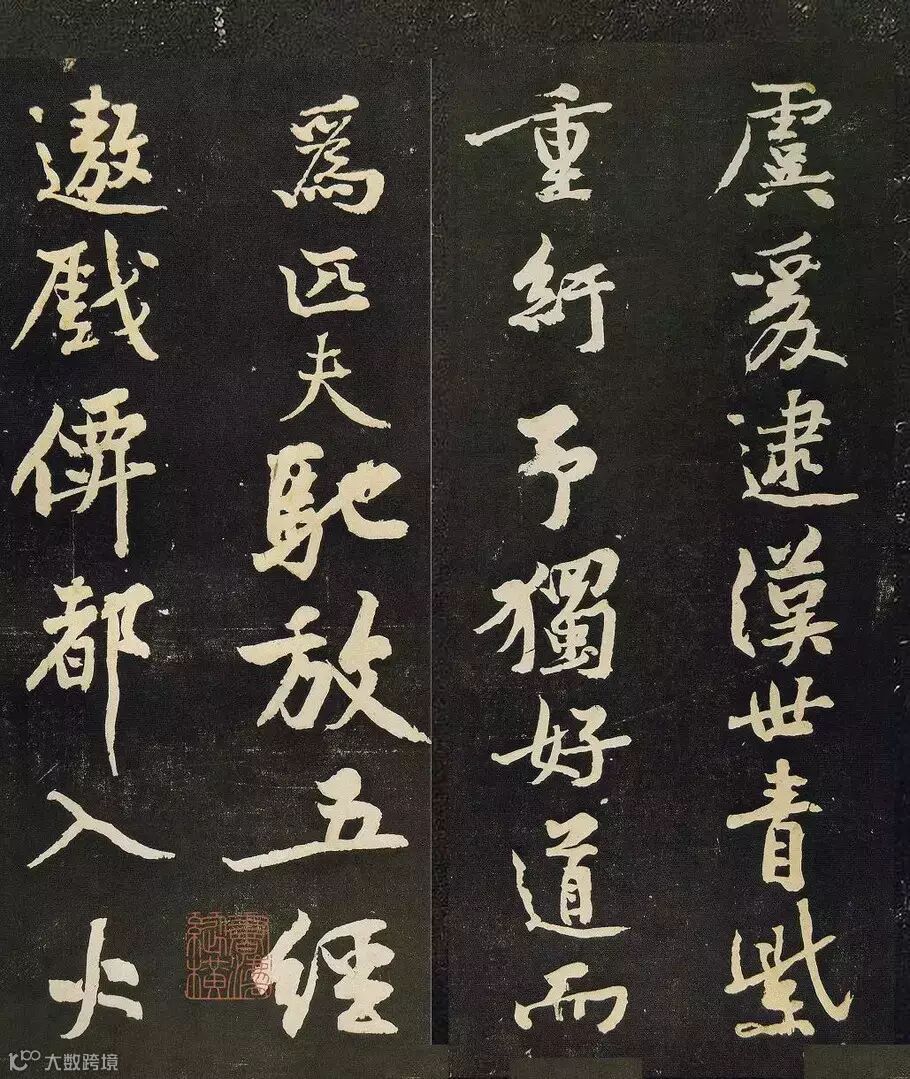 虞爰逮漢世青紫
重紆予獨好道而
爲匹夫馳放五經
遨戲僊都入火
大数跨境